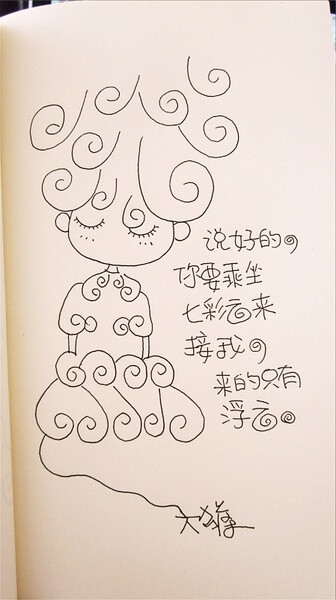 说好的，
你要乘坐
七彩云来
接我，
来的只有
浮云。